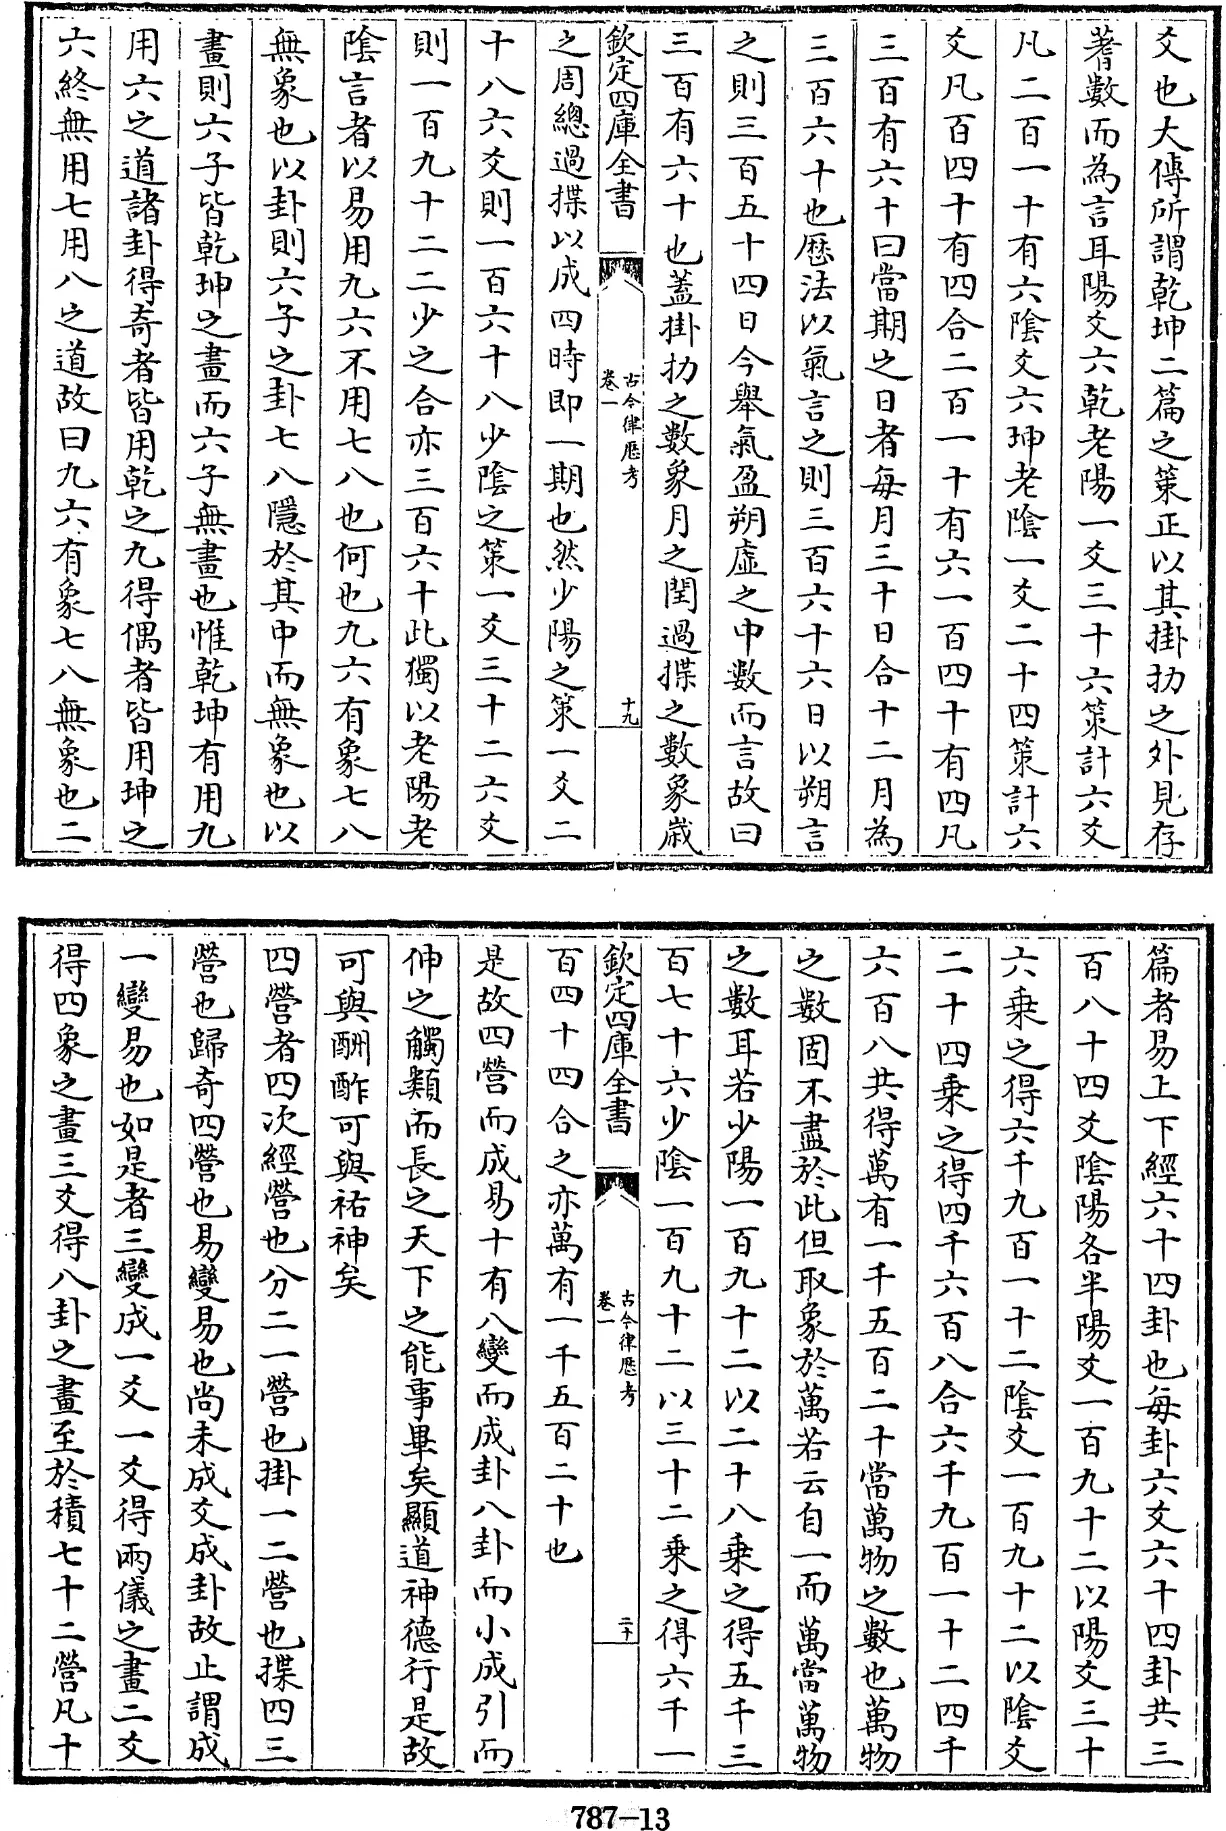 爻也大傳所謂乾坤二篇之策正以其掛扐之外見存
蓍數而為言耳陽爻六乾老陽一爻三十六策計六爻
凡二百一十有六陰爻六坤老陰一爻二十四策計六
爻凡百四十有四合二百一十有六一百四十有四凡
三百有六十曰當期之日者每月三十日合十二月為
三百六十也歷法以氣言之則三百六十六日以朔言
之則三百五十四日今舉氣盈朔虛之中數而言故曰
三百有六十也蓋掛扐之數象月之閏過揲之數象歲
欽定四庫全書
古今律歷考
卷一
十九
之周總過揲以成四時即一期也然少陽之策一爻二
十八六爻則一百六十八少陰之策一爻三十二六爻
則一百九十二二少之合亦三百六十此獨以老陽老
陰言者以易用九六不用七八也何也九六有象七八
無象也以卦則六子之卦七八隱於其中而無象也以
畫則六子皆乾坤之畫而六子無畫也惟乾坤有用九
用六之道諸卦得奇者皆用乾之九得偶者皆用坤之
六終無用七用八之道故曰九六有象七八無象也二
篇者易上下經六十四卦也每卦六爻六十四卦共三
百八十四爻陰陽各半陽爻一百九十二以陽爻三十
六乘之得六千九百一十二陰爻一百九十二以陰爻
二十四乘之得四千六百八合六千九百一十二四千
六百八共得萬有一千五百二十當萬物之數也萬物
之數固不盡於此但取象於萬若云自一而萬當萬物
之數耳若少陽一百九十二以二十八乘之得五千三
百七十六少陰一百九十二以三十二乘之得六千一
欽定四庫全書
古今律歷考
卷一
二十
百四十四合之亦萬有一千五百二十也
是故四營而成易十有八變而成卦八卦而小成引而
伸之觸類而長之天下之能事畢矣顯道神德行是故
可與酬酢可與祐神矣
四營者四次經營也分二一營也掛一二營也揲四三
營也歸奇四營也易變易也尚未成爻成卦故止謂成
一變易也如是者三變成一爻一爻得兩儀之畫二爻
得四象之畫三爻得八卦之畫至於積七十二營凡十
787-13